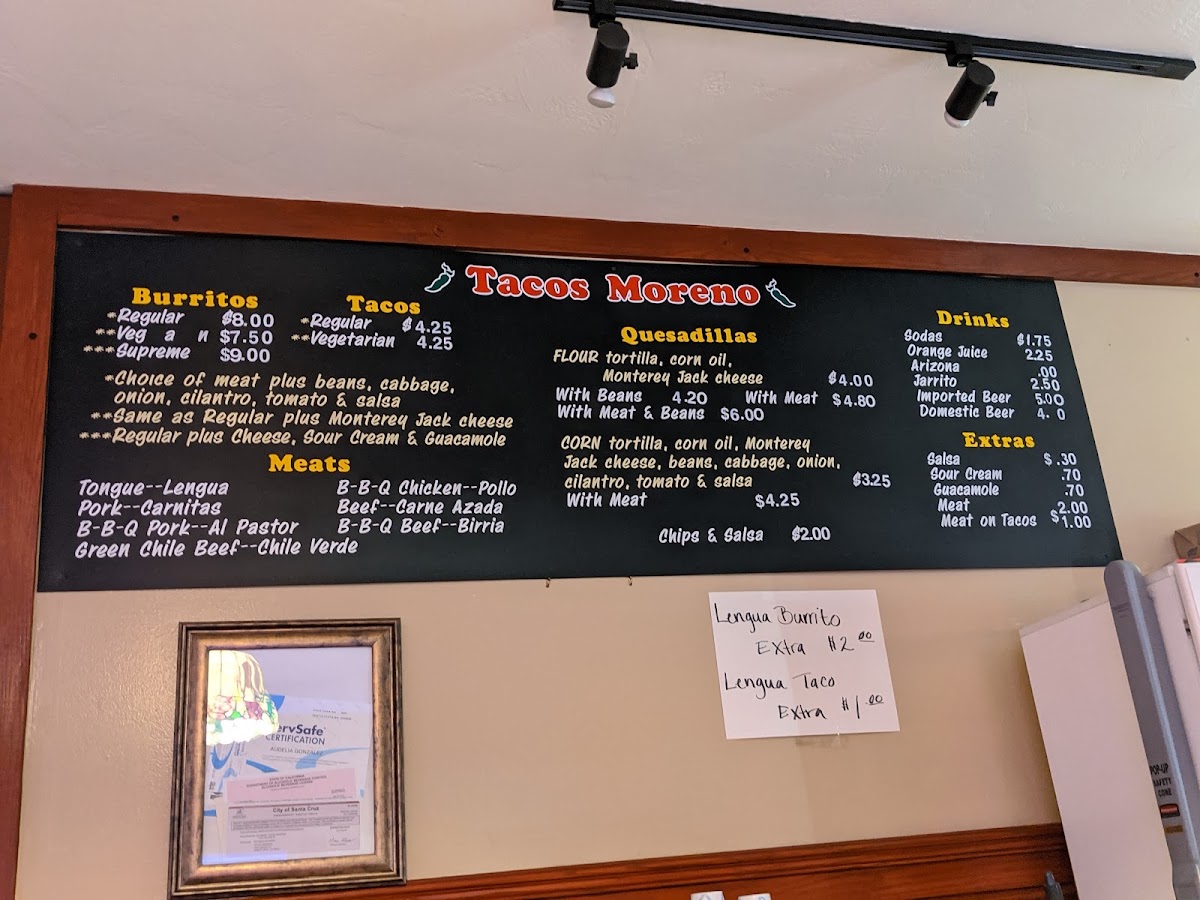 Tacos Moreno
Burritos
*Regular $8.00
**Veg a n $7.50
***Supreme $9.00
Tacos
*Regular $4.25
**Vegetarian 4.25
*Choice of meat plus beans, cabbage,
onion, cilantro, tomato & salsa
**Same as Regular plus Monterey Jack cheese
***Regular plus Cheese, Sour Cream & Guacamole
Meats
Tongue--Lengua
Pork--Carnitas
B-B-Q Pork--Al Pastor
Green Chile Beef--Chile Verde
B-B-Q Chicken--Pollo
Beef--Carne Azada
B-B-Q Beef--Birria
Quesadillas
FLOUR tortilla, corn oil,
Monterey Jack cheese $4.00
With Beans 4.20 With Meat $4.80
With Meat & Beans $6.00
CORN tortilla, corn oil, Monterey
Jack cheese, beans, cabbage, onion,
cilantro, tomato & salsa $3.25
With Meat $4.25
Chips & Salsa $2.00
Drinks
Sodas $1.75
Orange Juice 2.25
Arizona .00
Jarrito 2.50
Imported Beer 5.00
Domestic Beer 4. 0
Extras
Salsa $.30
Sour Cream .70
Guacamole .70
Meat 2.00
Meat on Tacos $1.00
Lengua Burrito
Extra $2.00
Lengua Taco
Extra $1.00
ervSafe
CERTIFICATION
AUDELIA GONZALEZ
STATE OF CALIFORNIA
DEPARTMENT OF ALCOHOLIC BEVERAGE CONTROL
ALCOHOLIC BEVERAGE LICENSE
City of Santa Cruz
POP-UP
SAFETY
CONE